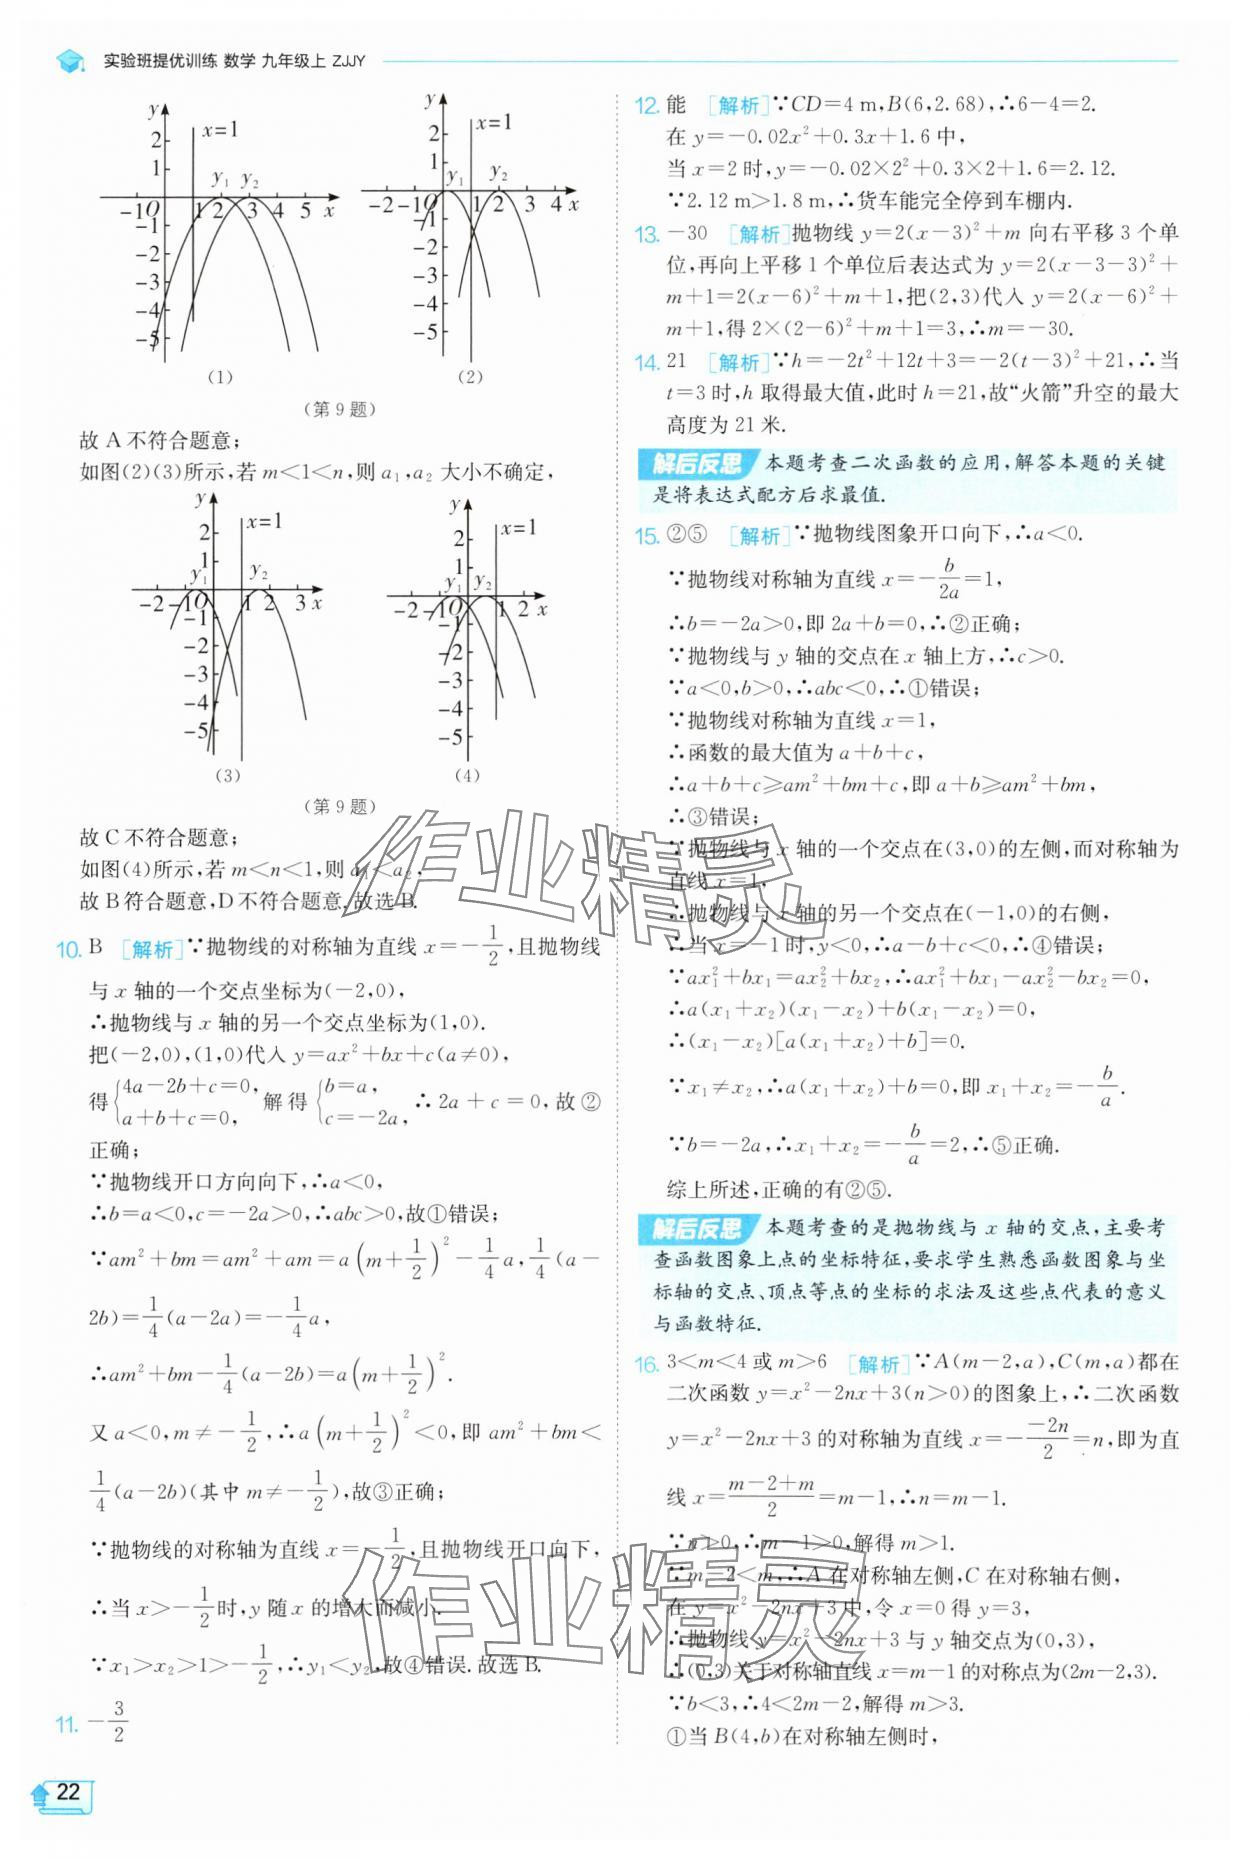 实验班提优训练 数学 九年级上 ZJJY
y
2
1
-1 O
1 2 3 4 5 x
-1
-2
-3
-4
-5
x=1
y₁ y₂
(1)
y
2
1
-2 -1 O
1 2 3 4 x
-1
-2
-3
-4
-5
x=1
y₁ y₂
(2)
(第9题)
故A不符合题意;
如图(2)(3)所示,若m<1<n,则a₁,a₂大小不确定,
y
2
1
-2 -1 O
1 2 3 x
-1
-2
-3
-4
-5
x=1
y₁ y₂
(3)
y
2
1
-2 -1 O
1 2 x
-1
-2
-3
-4
-5
x=1
y₁ y₂
(4)
(第9题)
故C不符合题意;
如图(4)所示,若m<n<1,则a₁<a₂,
故B符合题意,D不符合题意.故选B.
10. B [解析]∵抛物线的对称轴为直线x=-1/2,且抛物线
与x轴的一个交点坐标为(-2,0),
∴抛物线与x轴的另一个交点坐标为(1,0).
把(-2,0),(1,0)代入y=ax²+bx+c(a≠0),
得{4a-2b+c=0, a+b+c=0, 解得{b=a, c=-2a, ∴2a+c=0,故②
正确;
∵抛物线开口方向向下,∴a<0,
∴b=a<0,c=-2a>0,∴abc>0,故①错误;
∵am²+bm=am²+am=a(m+1/2)²-1/4a,1/4(a-
2b)=1/4(a-2a)=-1/4a,
∴am²+bm-1/4(a-2b)=a(m+1/2)².
又a<0,m≠-1/2,∴a(m+1/2)²<0,即am²+bm<
1/4(a-2b)(其中m≠-1/2),故③正确;
∵抛物线的对称轴为直线x=-1/2,且抛物线开口向下,
∴当x>-1/2时,y随x的增大而减小.
∵x₁>x₂>1>-1/2,∴y₁<y₂,故④错误.故选B.
11. -3/2
12. 能 [解析]∵CD=4 m,B(6,2.68),∴6-4=2.
在y=-0.02x²+0.3x+1.6中,
当x=2时,y=-0.02×2²+0.3×2+1.6=2.12.
∵2.12 m>1.8 m,∴货车能完全停到车棚内.
13. -30 [解析]抛物线y=2(x-3)²+m向右平移3个单
位,再向上平移1个单位后表达式为y=2(x-3-3)²+
m+1=2(x-6)²+m+1,把(2,3)代入y=2(x-6)²+
m+1,得2×(2-6)²+m+1=3,∴m=-30.
14. 21 [解析]∵h=-2t²+12t+3=-2(t-3)²+21,∴当
t=3时,h取得最大值,此时h=21,故“火箭”升空的最大
高度为21米.
解后反思 本题考查二次函数的应用,解答本题的关键
是将表达式配方后求最值.
15. ②⑤ [解析]∵抛物线图象开口向下,∴a<0.
∵抛物线对称轴为直线x=-b/2a=1,
∴b=-2a>0,即2a+b=0,∴②正确;
∵抛物线与y轴的交点在x轴上方,∴c>0.
∵a<0,b>0,∴abc<0,∴①错误;
∵抛物线对称轴为直线x=1,
∴函数的最大值为a+b+c,
∴a+b+c≥am²+bm+c,即a+b≥am²+bm,
∴③错误;
∵抛物线与x轴的一个交点在(3,0)的左侧,而对称轴为
直线x=1,
∴抛物线与x轴的另一个交点在(-1,0)的右侧,
∴当x=-1时,y<0,∴a-b+c<0,∴④错误;
∵ax₁²+bx₁=ax₂²+bx₂,∴ax₁²+bx₁-ax₂²-bx₂=0,
∴a(x₁+x₂)(x₁-x₂)+b(x₁-x₂)=0,
∴(x₁-x₂)[a(x₁+x₂)+b]=0.
∵x₁≠x₂,∴a(x₁+x₂)+b=0,即x₁+x₂=-b/a.
∵b=-2a,∴x₁+x₂=-b/a=2,∴⑤正确.
综上所述,正确的有②⑤.
解后反思 本题考查的是抛物线与x轴的交点,主要考
查函数图象上点的坐标特征,要求学生熟悉函数图象与坐
标轴的交点、顶点等点的坐标的求法及这些点代表的意义
与函数特征.
16. 3<m<4或m>6 [解析]∵A(m-2,a),C(m,a)都在
二次函数y=x²-2nx+3(n>0)的图象上,∴二次函数
y=x²-2nx+3的对称轴为直线x=--2n/2=n,即为直
线x=m-2+m/2=m-1,∴n=m-1.
∵n>0,∴m-1>0,解得m>1.
∵m-2<m,∴A在对称轴左侧,C在对称轴右侧,
在y=x²-2nx+3中,令x=0得y=3,
∴抛物线y=x²-2nx+3与y轴交点为(0,3),
∴(0,3)关于对称轴直线x=m-1的对称点为(2m-2,3).
∵b<3,∴4<2m-2,解得m>3.
①当B(4,b)在对称轴左侧时,
22
作业精灵
作业精灵